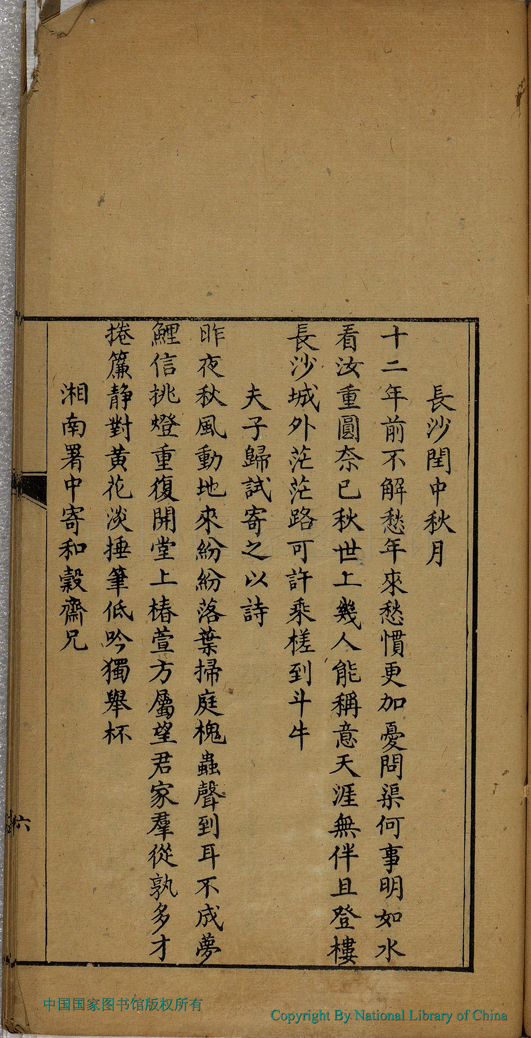 長沙閏中秋月
十二年前不解愁年來愁慣更加憂問渠何事明如水
看汝重圓奈已秋世上幾人能稱意天涯無伴且登樓
長沙城外茫茫路可許乘槎到斗牛
夫子歸試寄之以詩
昨夜秋風動地來紛紛落葉掃庭槐蟲聲到耳不成夢
鯉信挑燈重復開堂上椿萱方屬望君家羣從孰多才
捲簾静對黃花淡捶筆低吟獨舉杯
湘南署中寄和穀齋兄
六
中国国家图书馆版权所有
Copyright By National Library of China